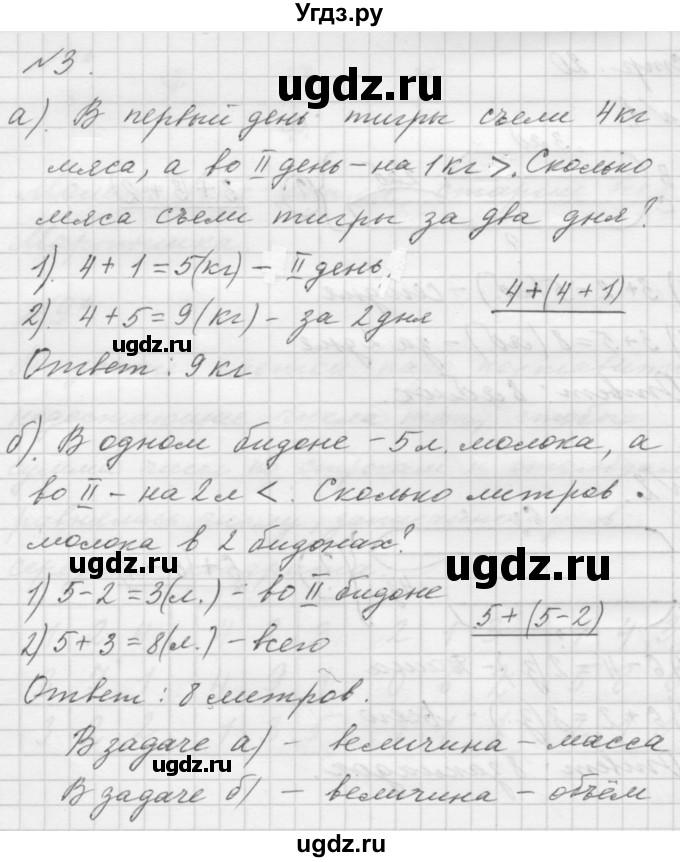 Угдз.ру
№3.
а). В первый день тигры съели 4кг
мяса, а во II день – на 1кг >. Сколько
мяса съели тигры за два дня?
1). 4 + 1 = 5(кг) – II день.
4+(4+1)
2). 4 + 5 = 9(кг) – за 2 дня
Ответ: 9 кг
б). В одном бидоне – 5 л. молока, а
во II – на 2 л <. Сколько литров
молока в 2 бидонах?
1) 5 - 2 = 3(л.) – во II бидоне
5+(5-2)
2) 5 + 3 = 8(л.) – всего
Ответ: 8 литров.
В задаче а) – величина – масса
В задаче б) – величина – объём
ugdz.ru
ugdz.ru
ugdz.ru
ugdz.ru
ugdz.ru
ugdz.ru
ugdz.ru
ugdz.ru